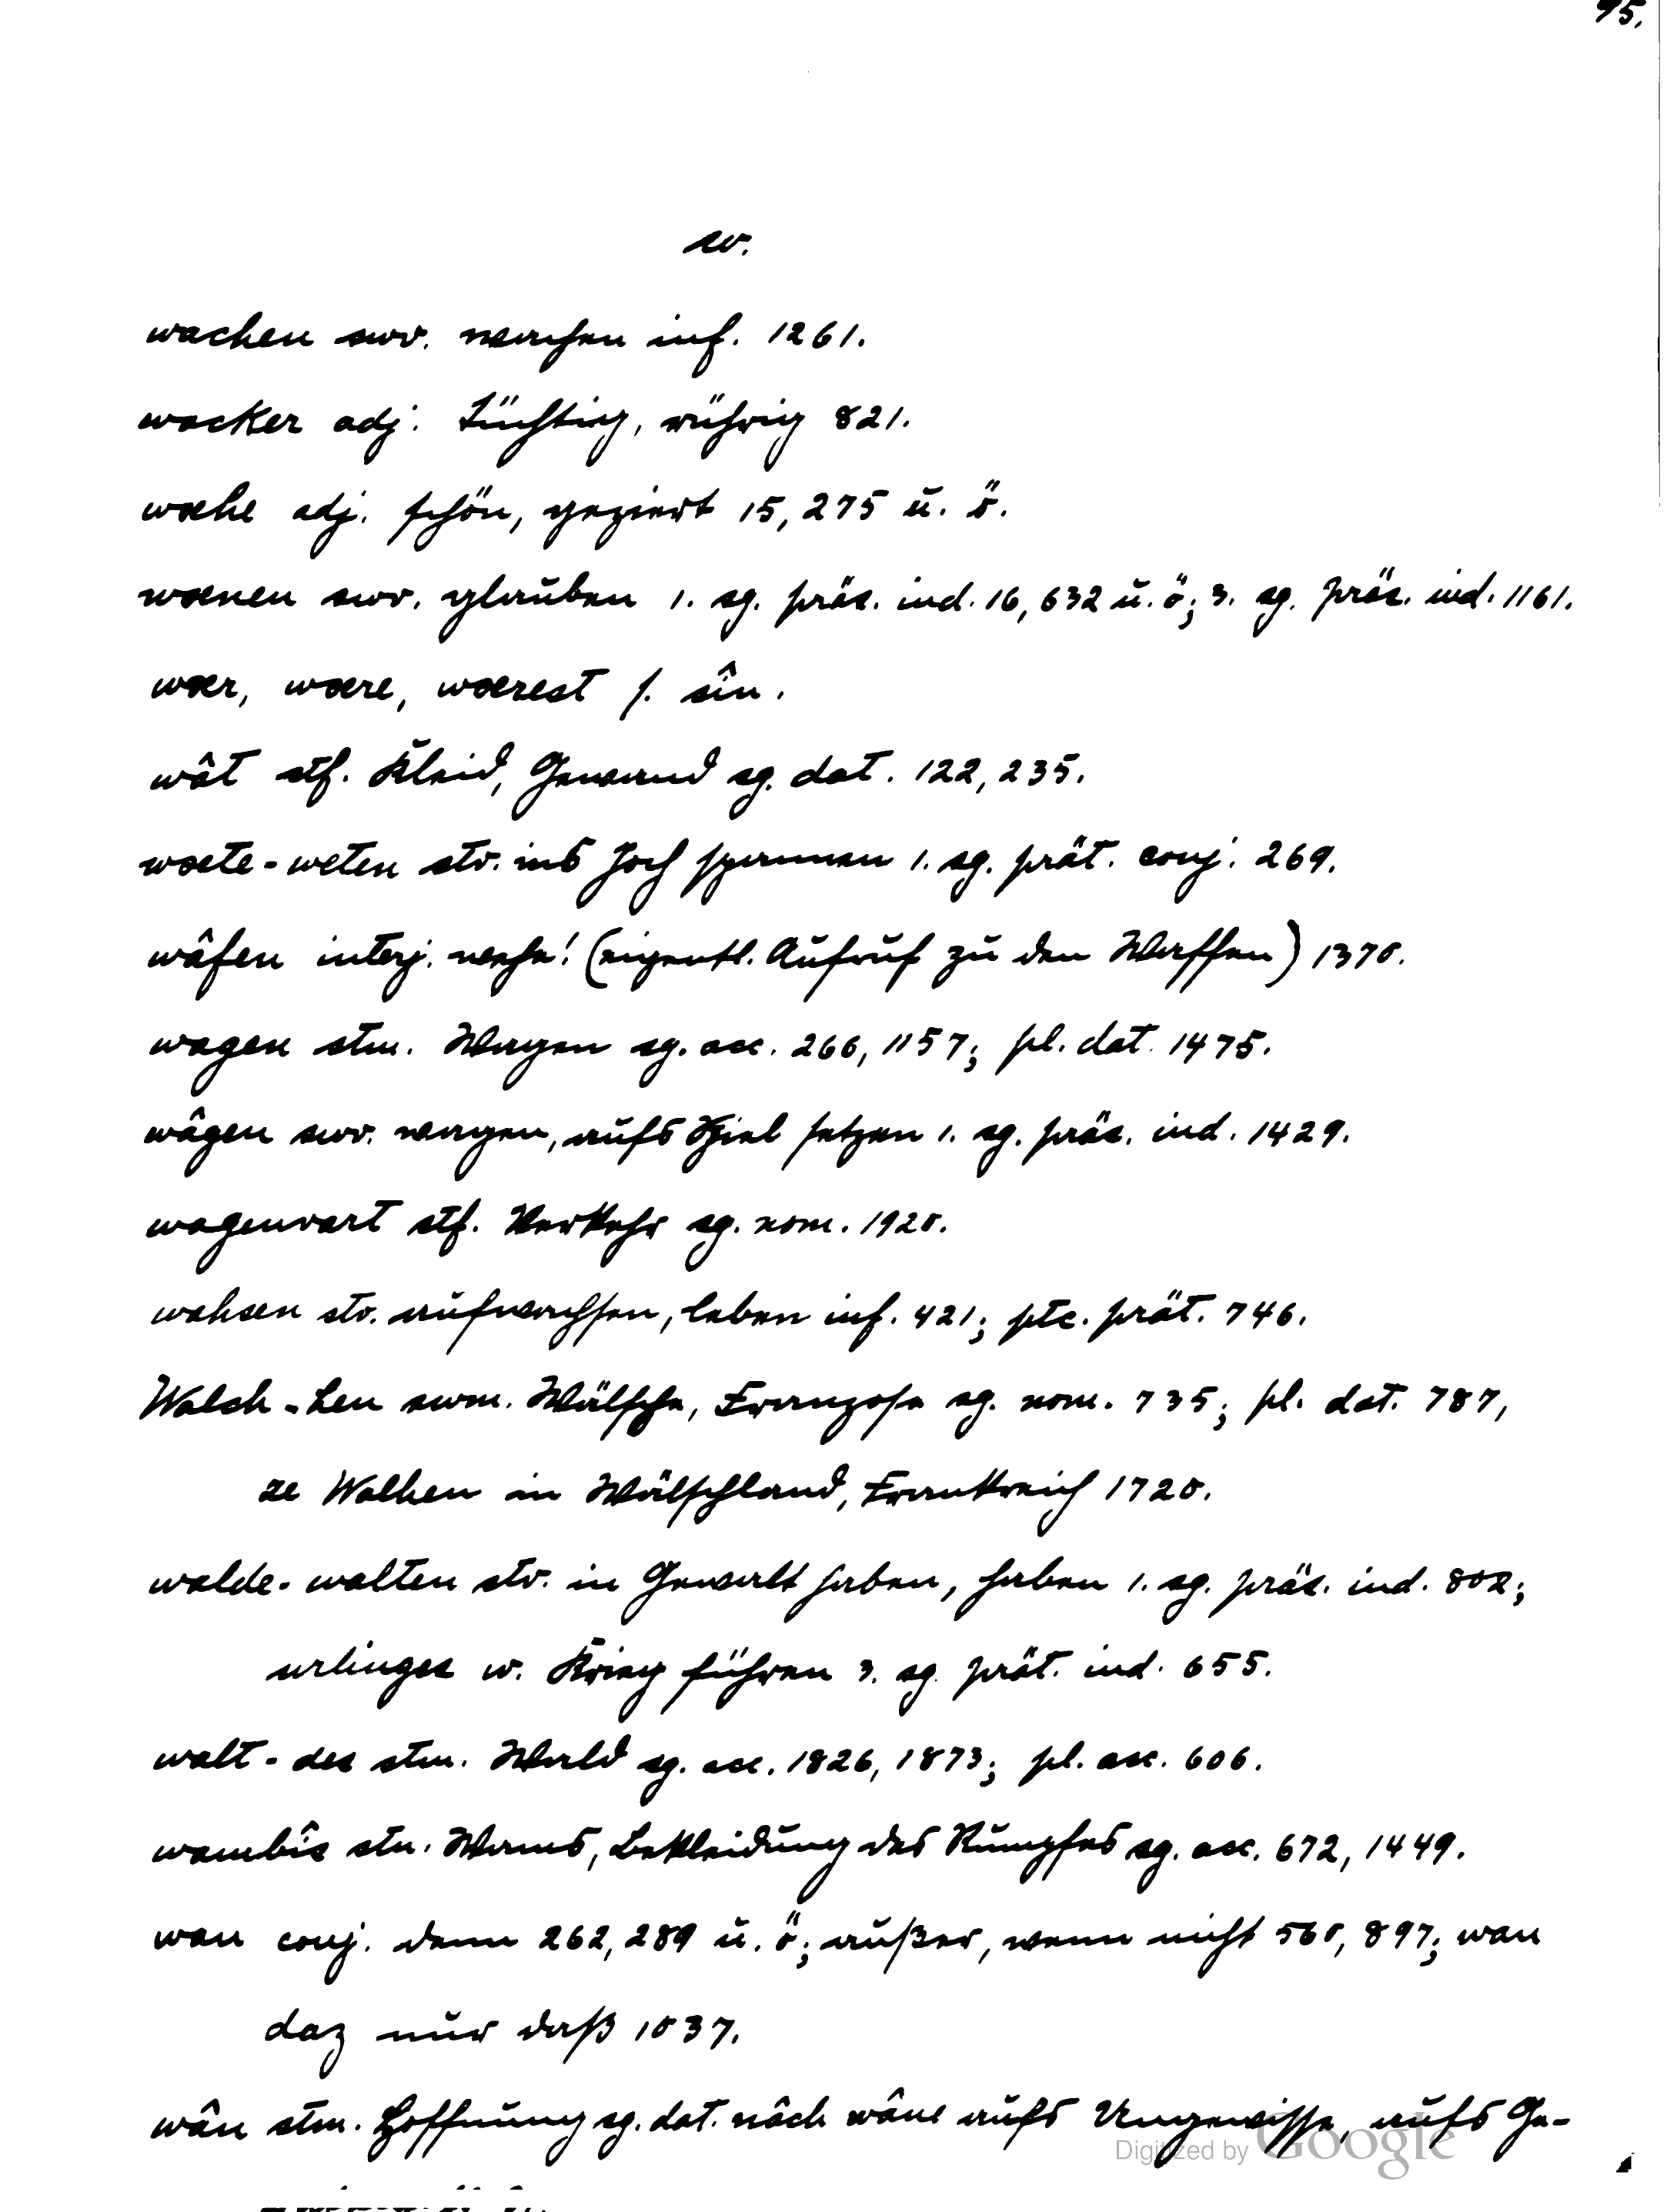 95.
w.
wachen swv. wachen inf. 1261.
wacker adj. tüchtig, rührig 821.
waehe adj. schön, geziert 15, 275 u. ö.
waenen swv. glauben 1. sg. präs. ind. 16, 632 u. ö; 3. sg. präs. ind. 1161.
waer, waere, waerest s. sîn.
wât stf. Kleid, Gewand sg. dat. 122, 235.
waete - weten stv. ins Joch spannen 1. sg. prät. conj. 269.
wâfen interj. wehe! (eigentl. Aufruf zu den Waffen) 1370.
wagen stm. Wagen sg. acc. 266, 1157; pl. dat. 1475.
wâgen swv. wagen, aufs Spiel setzen 1. sg. präs. ind. 1429.
wagenvart stf. Verkehr sg. nom. 1920.
wahsen stv. aufwachsen, leben inf. 421; ptc. prät. 746.
Walch - hen swm. Wälsche, Franzose sg. nom. 735; pl. dat. 787,
ze Walhen in Wälschland, Frankreich 1720.
walde - walten stv. in Gewalt haben, haben 1. sg. präs. ind. 802;
urlinges w. Krieg führen 3. sg. prät. ind. 655.
walt - des stm. Wald sg. acc. 1826, 1873; pl. acc. 606.
wambîs stn. Wams, Bekleidung des Rumpfes sg. acc. 672, 1449.
wan conj. denn 262, 289 u. ö; außer, wenn nicht 560, 897; wan
daz nur daß 1037.
wân stm. Hoffnung sg. dat. nâch wâne aufs Ungewisse, aufs Ge-
Digitized by Google